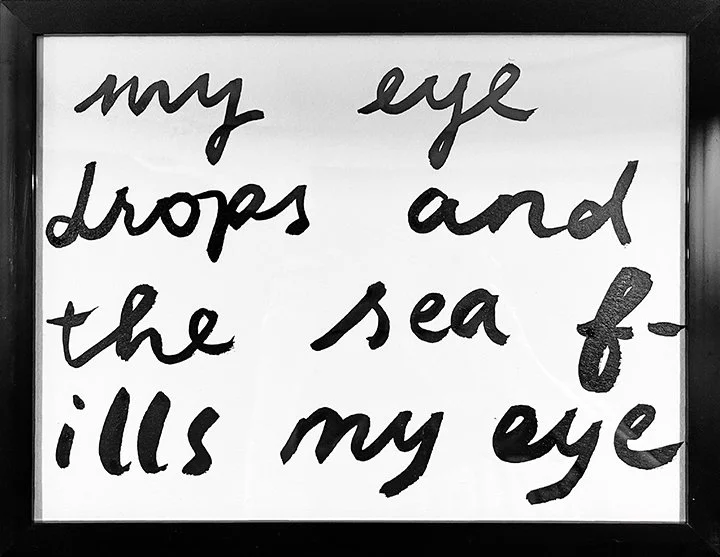 my eye
drops and
the sea f-
ills my eye